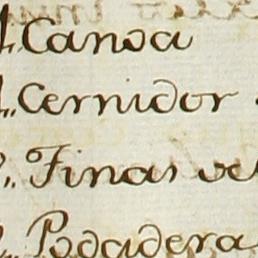 Canoa
Cernidor
Tinas de
Podadera